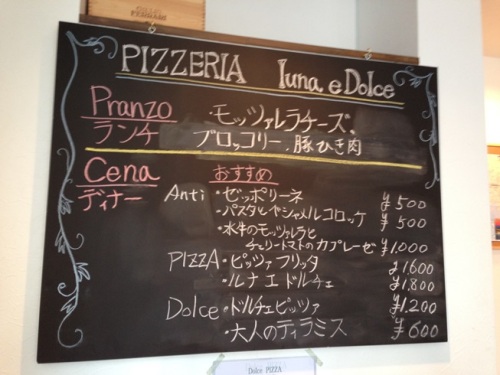 PIZZERIA luna e Dolce
Pranzo
ランチ
・モッツァレラチーズ、
ブロッコリー、豚ひき肉
Cena
ディナー
おすすめ
Anti ・ゼッポリーネ ¥500
・パスタとベシャメルコロッケ ¥500
・水牛のモッツァレラと
チェリートマトのカプレーゼ ¥1,000
PIZZA ・ピッツァフリッタ ¥1,600
・ルナ エ ドルチェ ¥1,800
Dolce ・ドルチェピッツァ ¥1,200
・大人のティラミス ¥600
Dolce PIZZA